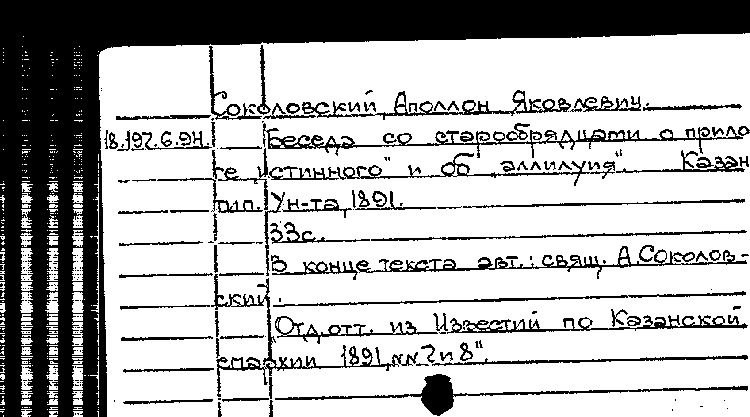 Соколовский, Аполлон Яковлевич.
18.197.6.94. Беседа со старообрядцами о прила
ге „истинного" и об „аллилуия". Казан
тип. Ун-та, 1891.
33с.
В конце текста авт.: свящ. А.Соколов-
ский.
„Отд.отт. из Известий по Казанской
епархии 1891, №№7и8".